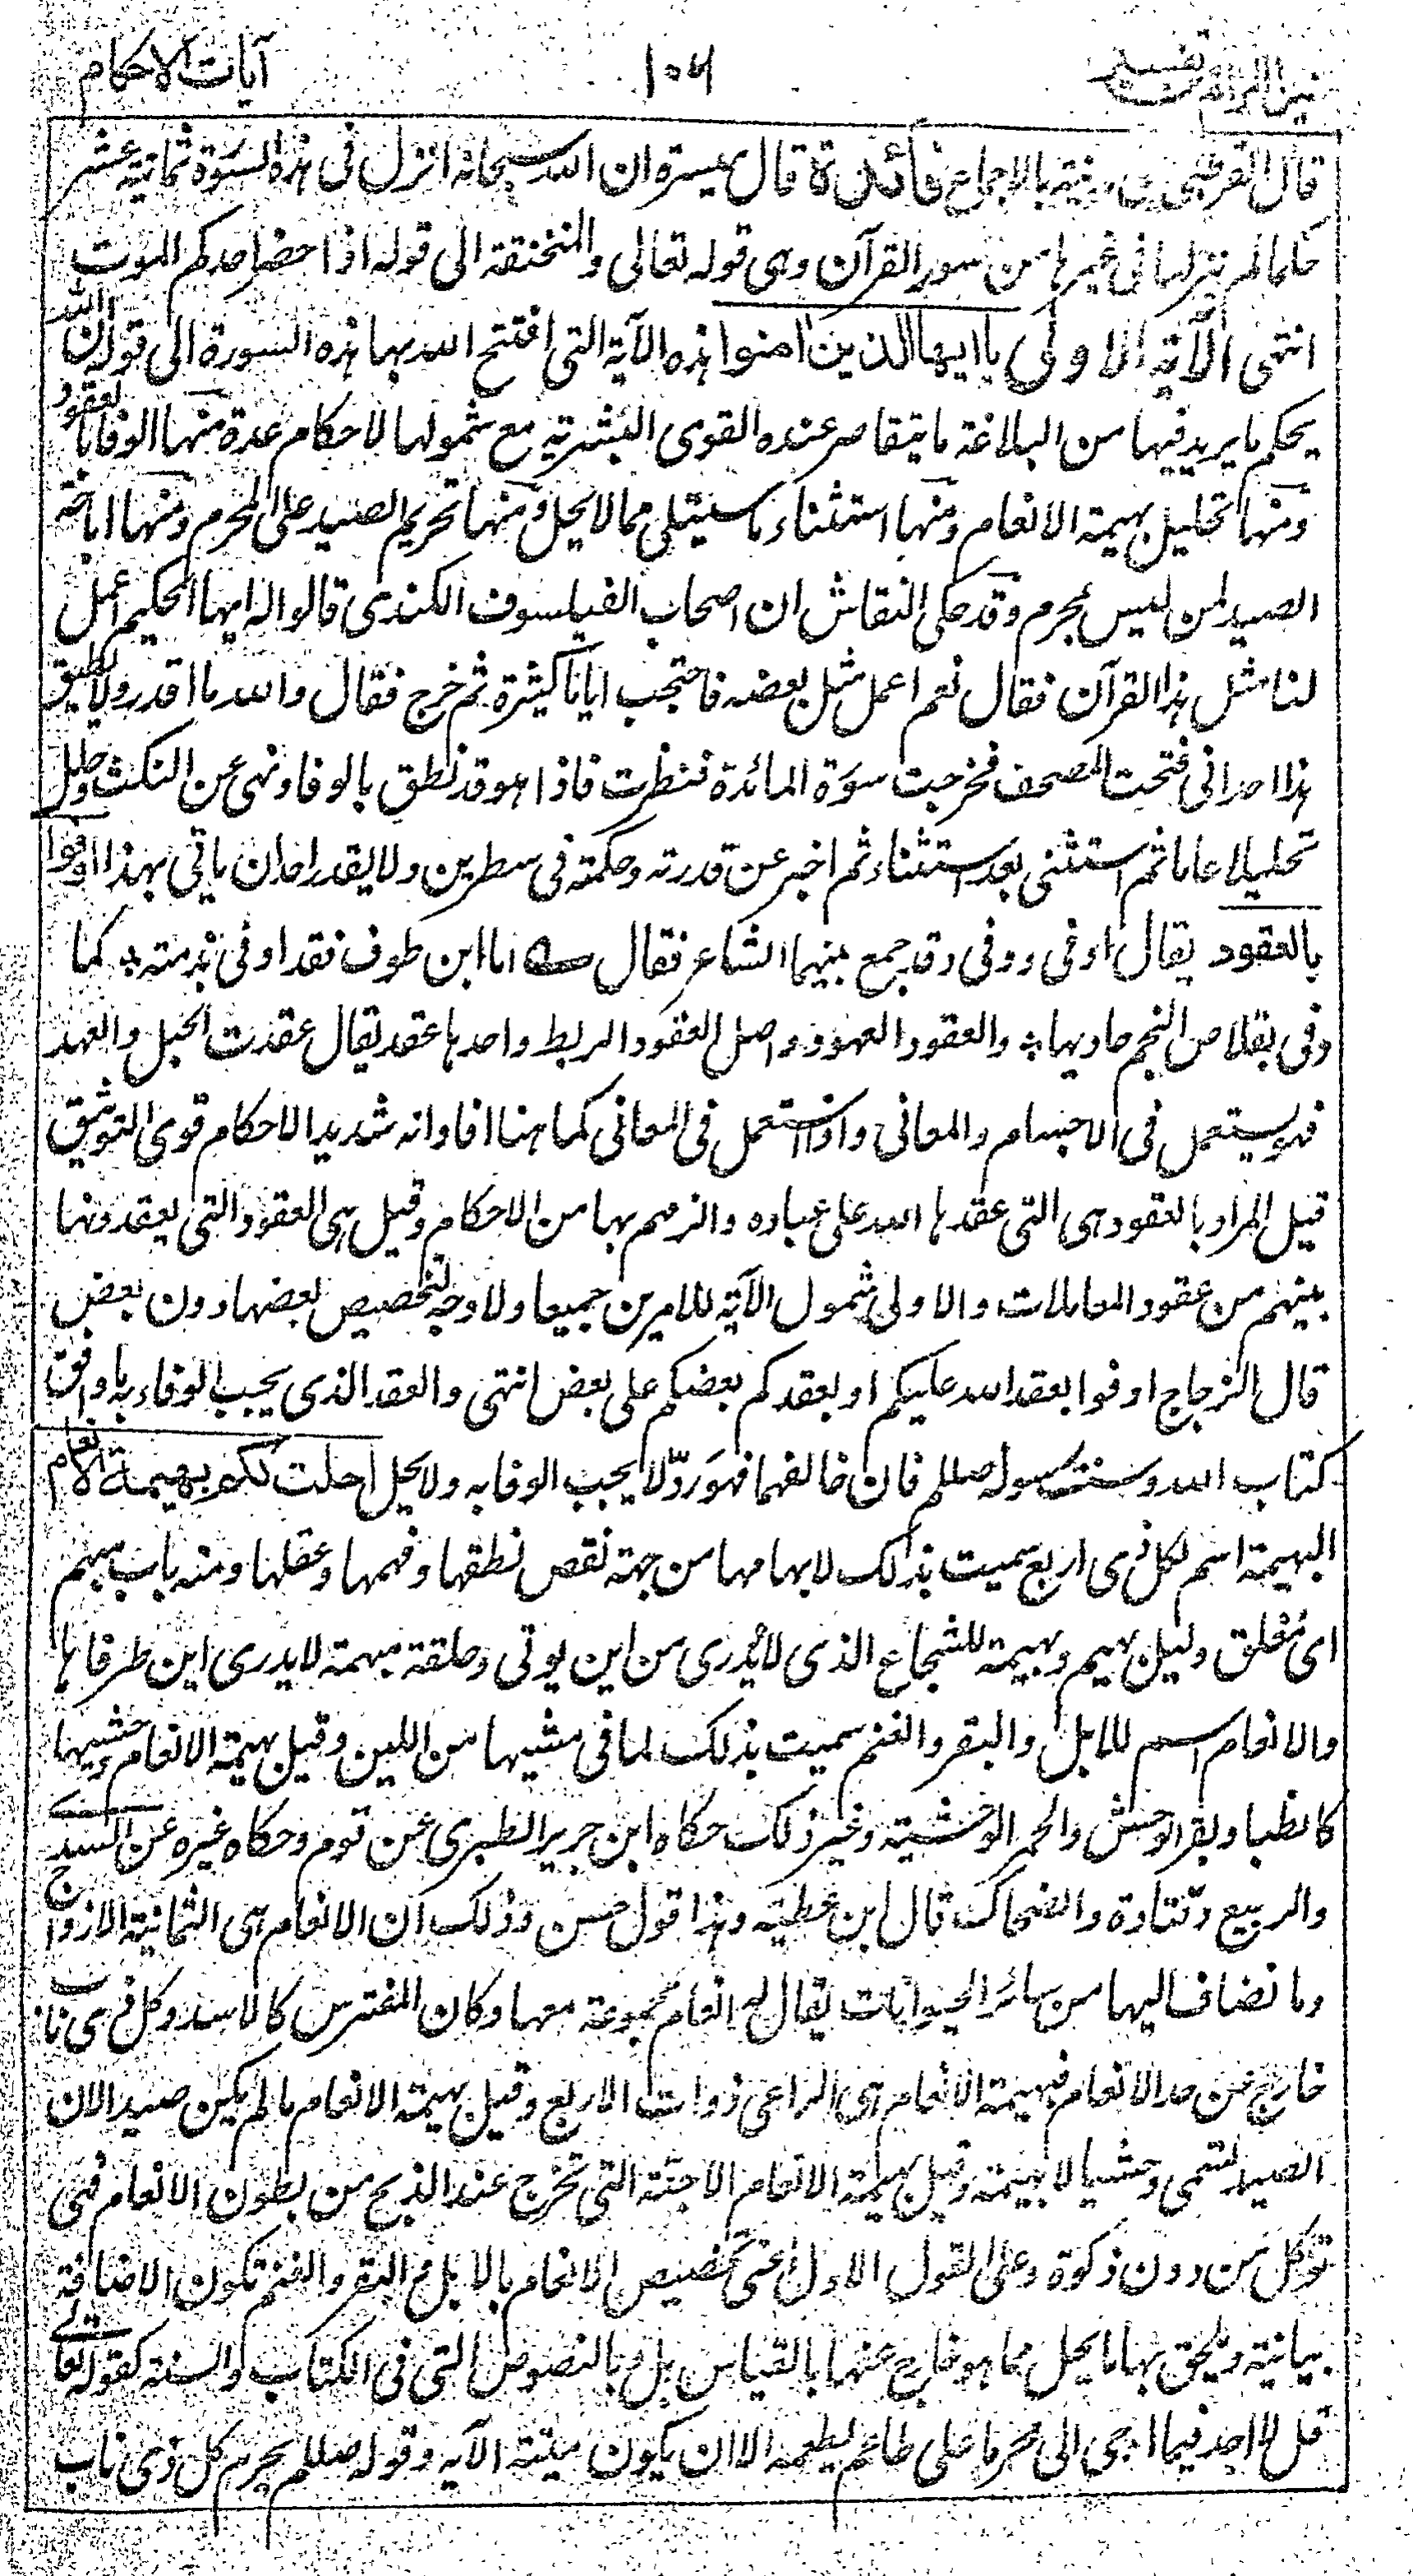 نيل المرام تفسير ١٠٦ آيات الاحكام
قال القرطبى هى مدنية بالاجماع فائدة قال ميسرة ان الله سبحانه انزل فى هذه السورة ثمانية عشر
حكما لم ينزلها فى غيرها من سور القرآن وهى قوله تعالى والمنخنقة الى قوله اذا حضر احدكم الموت
انتهى الآية الاولى يا ايها الذين امنوا هذه الآية التى افتتح الله بها هذه السورة الى قوله ان الله
يحكم ما يريد فيها من البلاغة ما يتقاصر عنده القوى البشرية مع شمولها لاحكام عدة منها الوفا بالعقود
ومنها تحليل بهيمة الانعام ومنها استثناء ما سيتلى مما لا يحل ومنها تحريم الصيد على المحرم ومنها اباحة
الصيد لمن ليس بمحرم وقد حكى النقاش ان اصحاب الفيلسوف الكندى قالوا له ايها الحكيم اعمل
لنا مثل هذا القرآن فقال نعم اعمل مثل بعضه فاحتجب اياما كثيرة ثم خرج فقال والله ما اقدر ولا يطيق
هذا احد انى فتحت المصحف فخرجت سورة المائدة فنظرت فاذا هو قد نطق بالوفا ونهى عن النكث وحلل
تحليلا عاما ثم استثنى بعد استثناء ثم اخبر عن قدرته وحكمته فى سطرين ولا يقدر احد ان ياتى بهذا اوفوا
بالعقود يقال اوفى ووفى وقد جمع بينهما الشاعر فقال ؎ اما ابن طوف فقد اوفى بذمته ؞ كما
وفى بقلاص النجم حاديها ؞ والعقود العهود واصل العقود الربط واحدها عقد يقال عقدت الحبل والعهد
فهو يستعمل فى الاجسام والمعانى واذا استعمل فى المعانى كما هنا افاد انه شديد الاحكام قوى التوثيق
قيل المراد بالعقود هى التى عقدها الله على عباده والزمهم بها من الاحكام وقيل هى العقود التى يعقدونها
بينهم من عقود المعاملات والاولى شمول الآية للامرين جميعا ولا وجه لتخصيص بعضها دون بعض
قال الزجاج اوفوا بعقد الله عليكم او بعقدكم بعضكم على بعض انتهى والعقد الذى يجب الوفاء به ما وافق
كتاب الله وسنت رسوله صللم فان خالفهما فهو ردّ لا يجب الوفا به ولا يحل احلت لكم بهيمة الانعام
البهيمة اسم لكل ذى اربع سميت بذلك لابهامها من جهة نقص نطقها وفهمها وعقلها ومنه باب مبهم
اى مغلق وليل بهيم وبهيمة للشجاع الذى لا يدرى من اين يوتى وحلقة مبهمة لا يدرى اين طرفاها
والانعام اسم للابل والبقر والغنم سميت بذلك لما فى مشيها من اللين وقيل بهيمة الانعام وحشيها
كالظبا وبقر الوحش والحمر الوحشية وغير ذلك حكاه ابن جرير الطبرى عن قوم وحكاه غيره عن السدى
والربيع وقتادة والضحاك قال ابن عطية وهذا قول حسن وذلك ان الانعام هى الثمانية الازواج
وما نضاف اليها من سائر الحيوانات يقال له انعام مجموعة معها وكان المفترس كالاسد وكل ذى ناب
خارج عن حد الانعام فبهيمة الانعام هى الراعى ذوات الاربع وقيل بهيمة الانعام ما لم يكن صيد الان
الصيد لتسمى وحشيا لا بهيمة وقيل بهيمة الانعام الاجنة التى تخرج عند الذبح من بطون الانعام فهى
توكل من دون ذكوة وعلى القول الاول اعنى تخصيص الانعام بالابل والبقر والغنم تكون الاضافة
بيانية ويلحق بها ما يحل مما هو خارج عنها بالقياس بل وبالنصوص التى فى الكتاب والسنة كقوله تعالى
قل لا اجد فيما اوحى الى محرما على طاعم يطعمه الا ان يكون ميتة الآية وقوله صللم يحرم كل ذى ناب